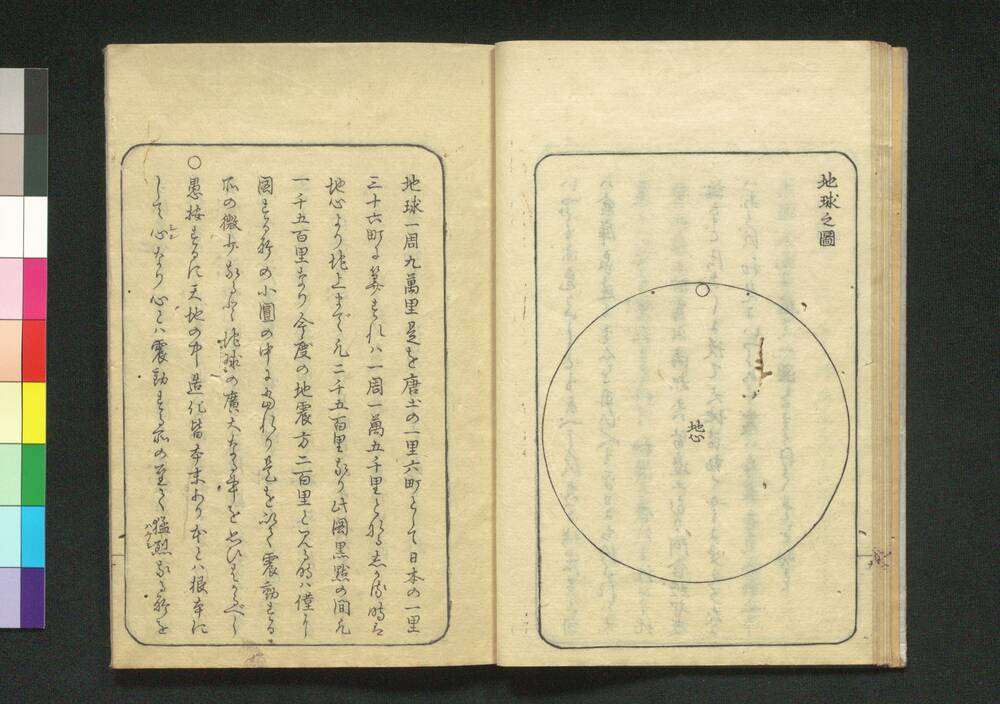 地球之圖
地心
地球一周九萬里是を唐土の一里六町として日本の一里
三十六町に算すれハ一周一萬五千里となるしかる時は
地心より地上まで凡二千五百里なり此圖黒點の間凡
一千五百里なり今度の地震方二百里と見る時ハ僅に
圖する所の小圓の中に当れり是を以て震動する
所の微少なるを地球の廣大なる事を思ひはかるべし
○愚按するに天地の中造化皆本末あり本とハ根本に
して心なり心とハ震動する所の至て猛烈なる所を